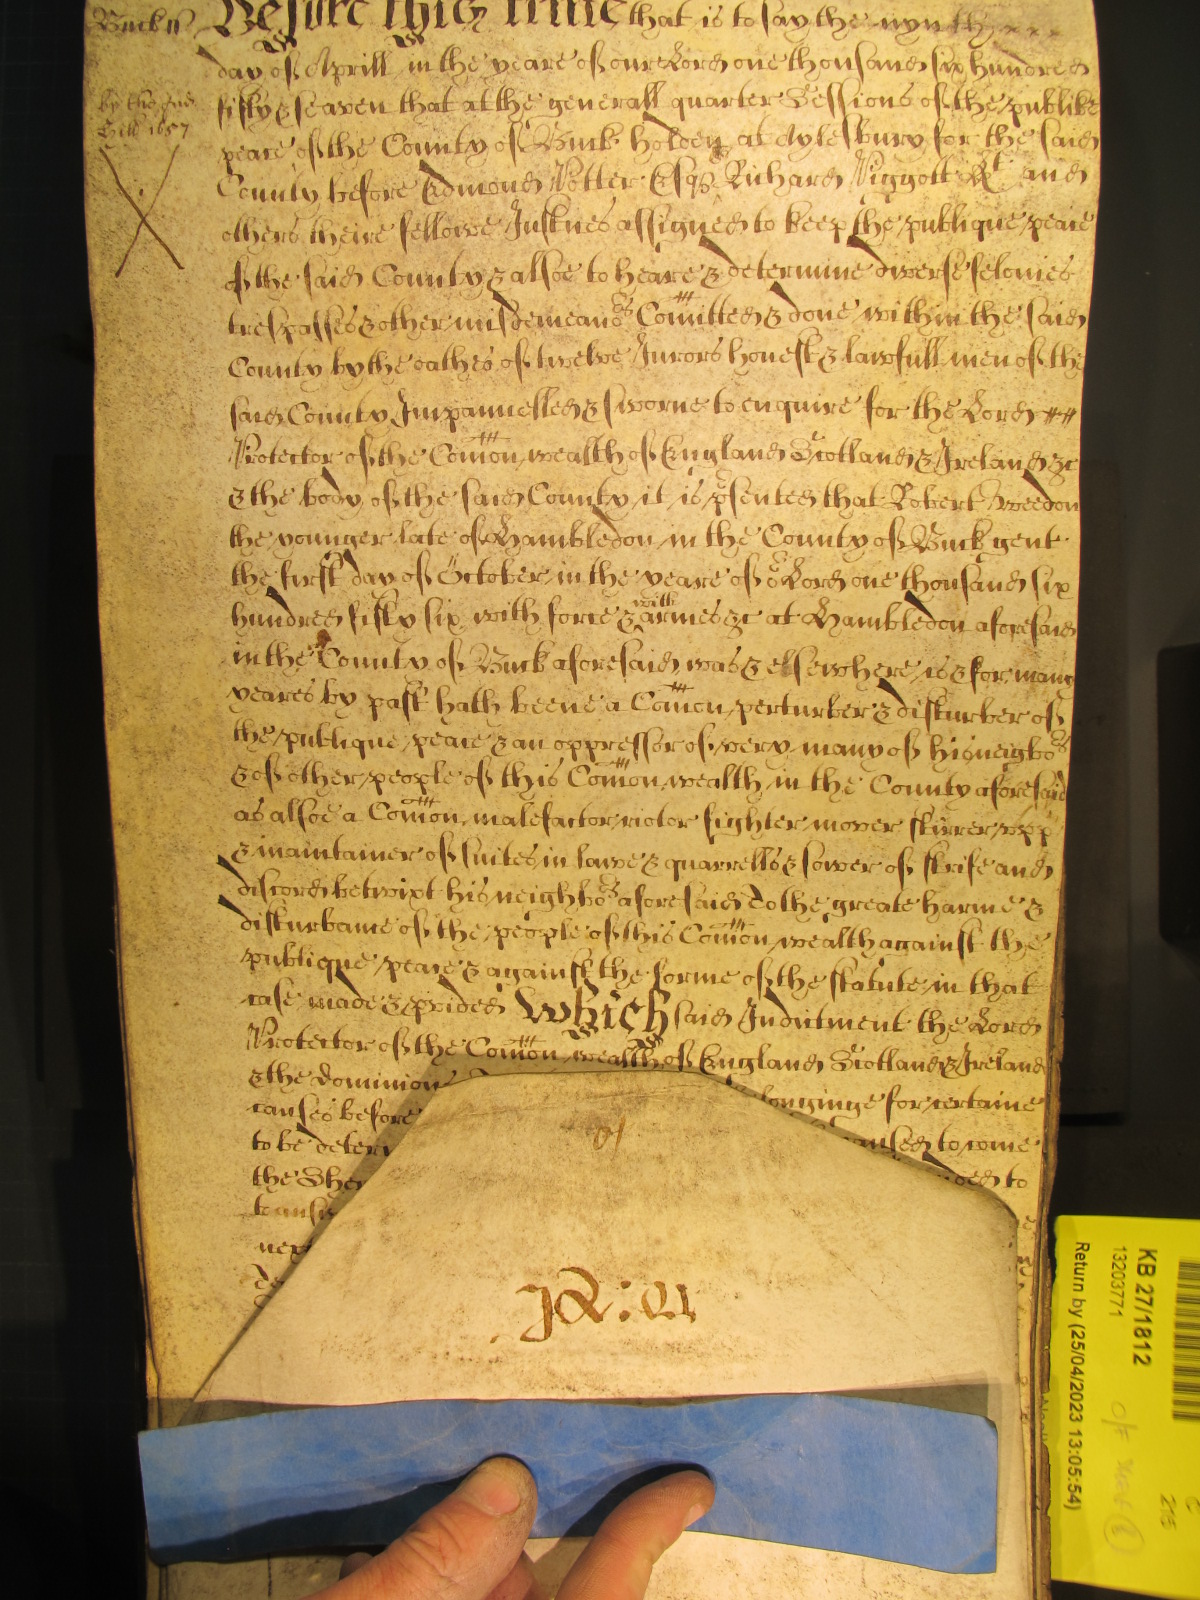 Buck ss Before this time that is to say the nynth
day of Aprill in the yeare of our Lord one thousand six hundred
fifty & seaven that at the generall quarter Sessions of the publike
by the Ind
Hill 1657
peace of the County of Buck holden at Aylesbury for the said
County before Edmond Potter Esqr Richard Piggott Kt and
others theire fellowe Justices assigned to keep the publique peace
of the said County & alsoe to heare & determine diverse felonies
trespasses & other misdemeanors Comitted & done within the said
County by the oathes of twelve Jurors honest & lawfull men of the
said County Impannelled & sworne to enquire for the Lord
Protector of the Comon wealth of England Scotland & Ireland &c
& the body of the said County it is psented that Robert Weedon
the younger late of Hambledon in the County of Buck gent
the first day of October in the yeare of or Lord one thousand six
hundred fifty six with force & with armes &c at Hambledon aforesaid
in the County of Buck aforesaid was & elsewhere is & for many
yeares by past hath beene a Comon perturber & disturber of
the publique peace & an oppressor of very many of his neigbors
& of other people of this Comon wealth in the County aforesaid
as alsoe a Comon malefactor riotor fighter mover stirrer upp
& maintainer of suites in lawe & quarrells & sower of strife and
discord betwixt his neighbors aforesaid To the greate harme &
disturbance of the people of this Comon wealth against the
publique peace & against the forme of the statute in that
case made & pvided Which said Indictment the Lord
Protector of the Comon wealth of England Scotland & Ireland
& the dominions longinge for certaine
causes before caused to come
to be deter ded to
the Sher
to answ
nex
KB 27/1812
13203771
Return by (25/04/2023 13:05:54)
215